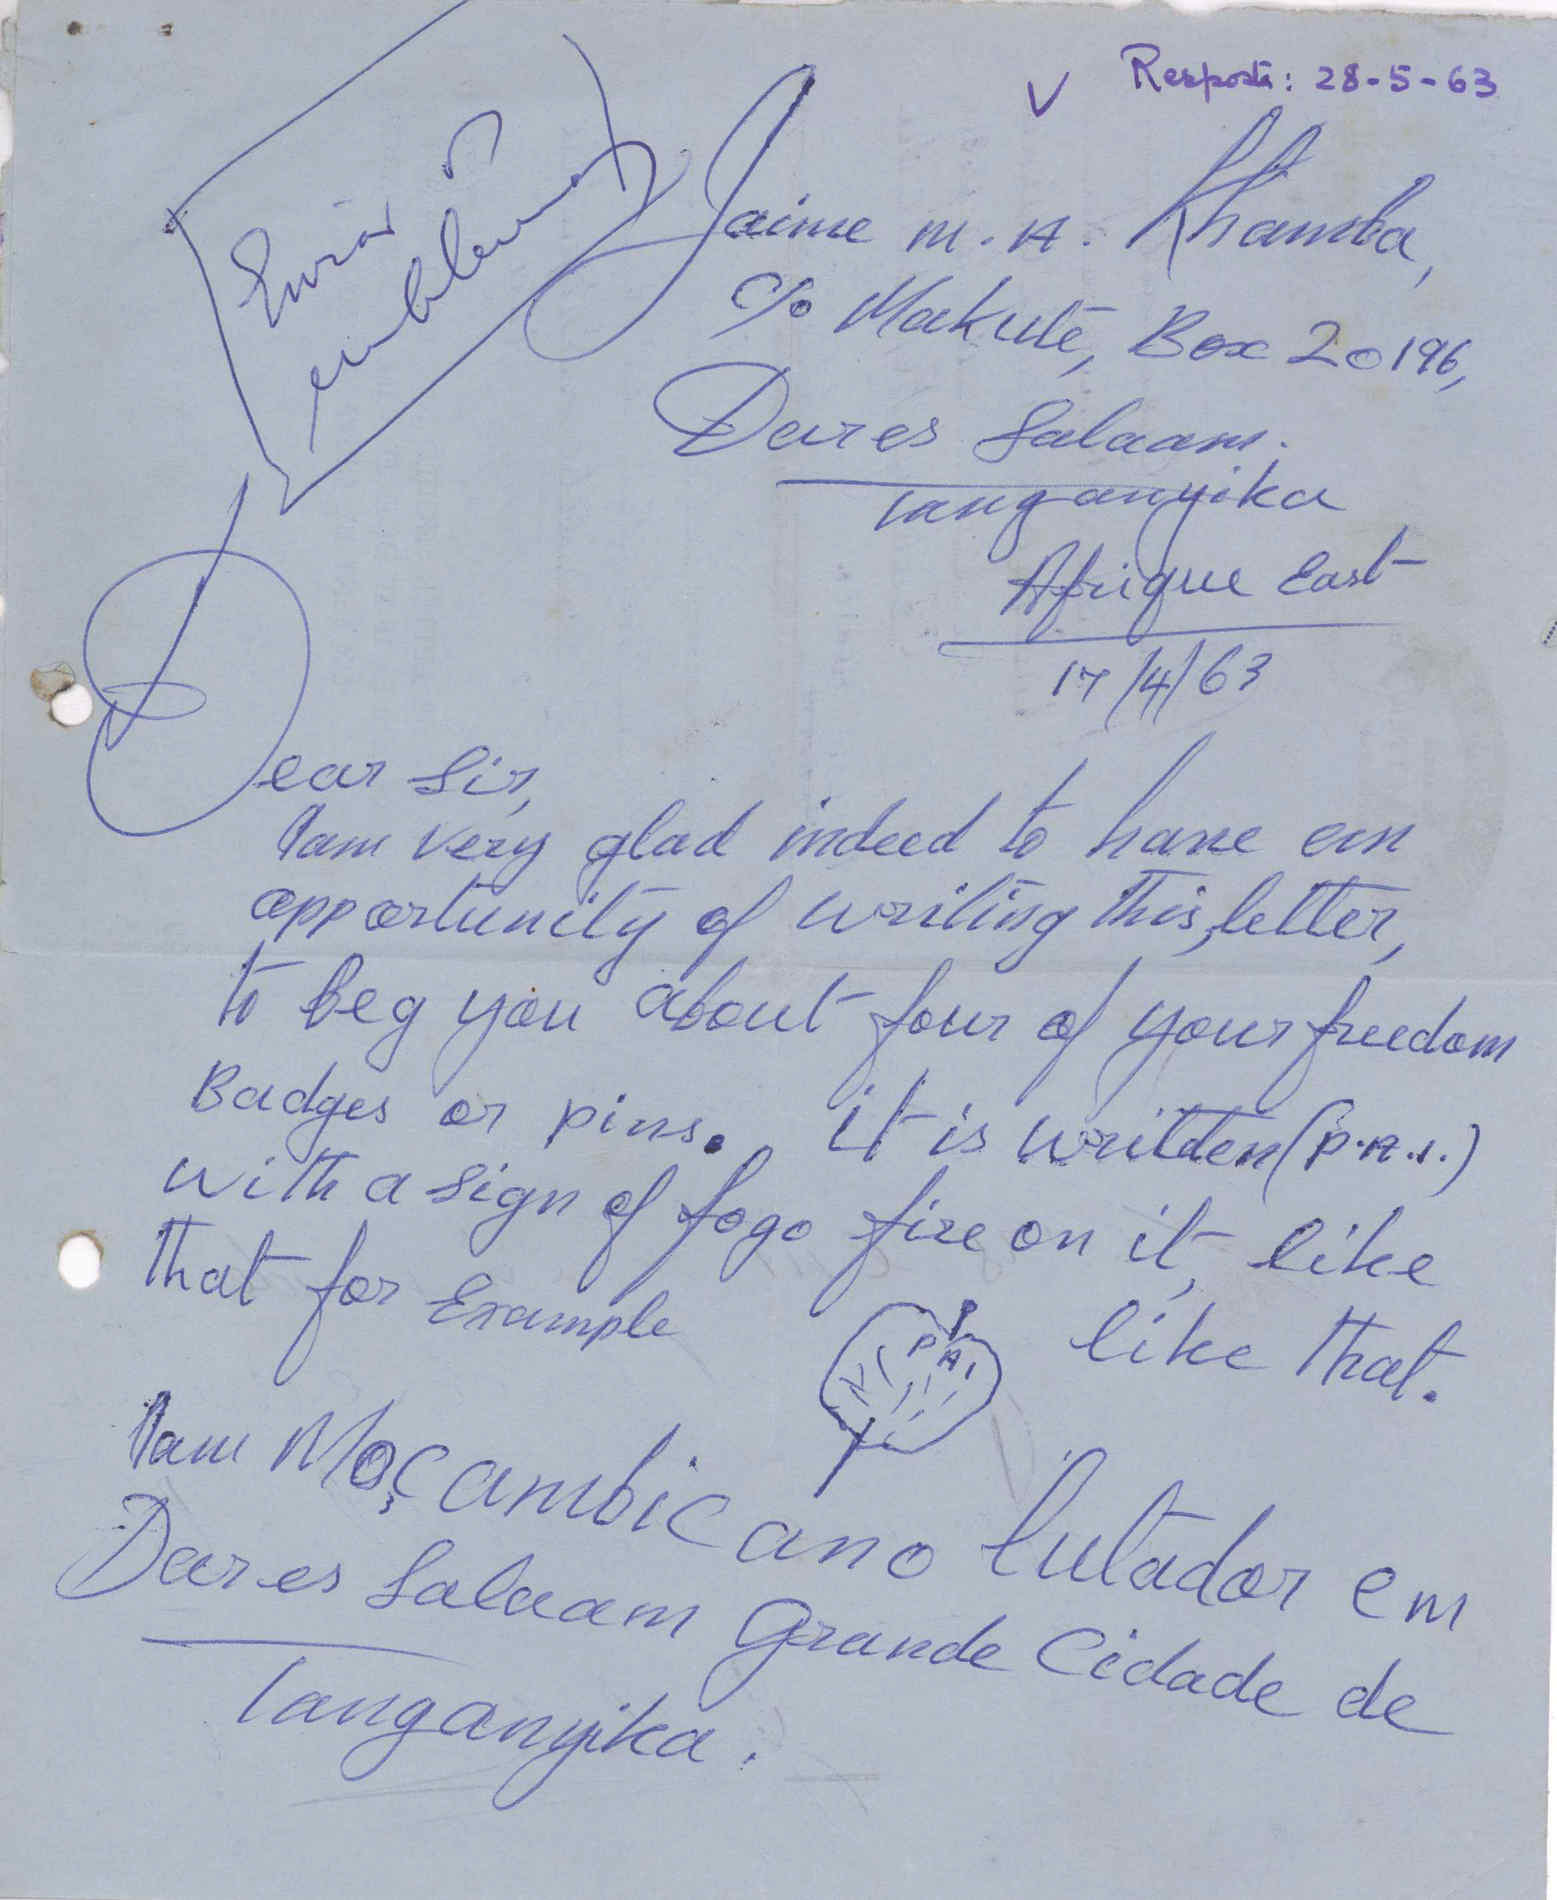 ✓ Resposta: 28-5-63
Enviar
emblemas
Jaime M. A. Khamba,
c/o Makute, Box 20196,
Dar es Salaam.
Tanganyika
Afrique East
17/4/63
Dear Sir,
I am very glad indeed to have an
opportunity of writing this, letter,
to beg you about four of your freedom
Badges or pins. it is written (P.A.I.)
with a sign of fogo fire on it, like
that for Example
P A I
like that.
I am Moçambicano lutador em
Dar es Salaam Grande Cidade de
Tanganyika.